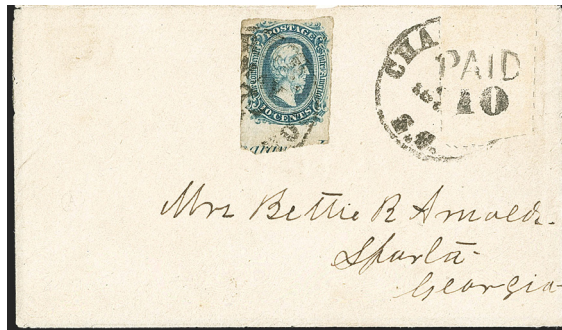 POSTAGE
CENTS
CHA
PAID
10
S.C.
Mrs Bettie R Arnold.
Sparta
Georgia